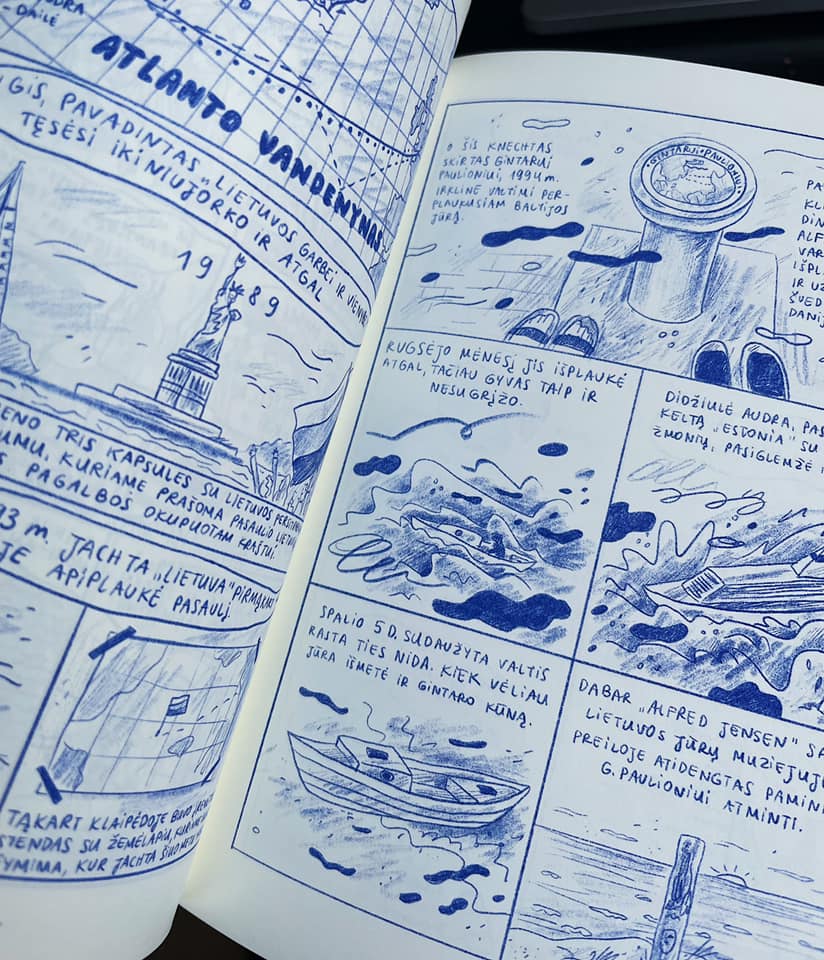 - DAILĖ
ATLANTO VANDENYNAS
GIS, PAVADINTAS „LIETUVOS GARBEI IR
TĘSĖSI IKI NIUJORKO IR ATGAL
1989
TRIS KAPSULES SU LIETUVOS
KURIAME PRAŠOMA PASAULIO
PAGALBOS OKUPUOTAM KRAŠTUI.
93 m. JACHTA „LIETUVA“
APIPLAUKĖ PASAULĮ.
TĄKART KLAIPĖDOJE BUVO
STENDAS SU ŽEMĖLAPIU,
KUR JACHTA
O ŠIS KNECHTAS
SKIRTAS GINTARUI
PAULIONIUI, 1994 m.
IRKLINE VALTIMI PER-
PLAUKUSIAM BALTIJOS
JŪRĄ.
GINTARUI PAULIONIUI
PA
KL
DIN
ALF
VAR
IŠPL
IR UŽ
ŠVED
DANIJ
RUGSĖJO MĖNESĮ JIS IŠPLAUKĖ
ATGAL, TAČIAU GYVAS TAIP IR
NESUGRĮŽO.
DIDŽIULĖ AUDRA, PAS
KELTĄ „ESTONIA“ SU
ŽMONIŲ, PASIGLEMŽĖ
SPALIO 5 D. SUDAUŽYTA VALTIS
RASTA TIES NIDA. KIEK VĖLIAU
JŪRA IŠMETĖ IR GINTARO KŪNĄ.
DABAR „ALFRED JENSEN“ SA
LIETUVOS JŪRŲ MUZIEJUJ
PREILOJE ATIDENGTAS PAMIN
G. PAULIONIUI ATMINTI.